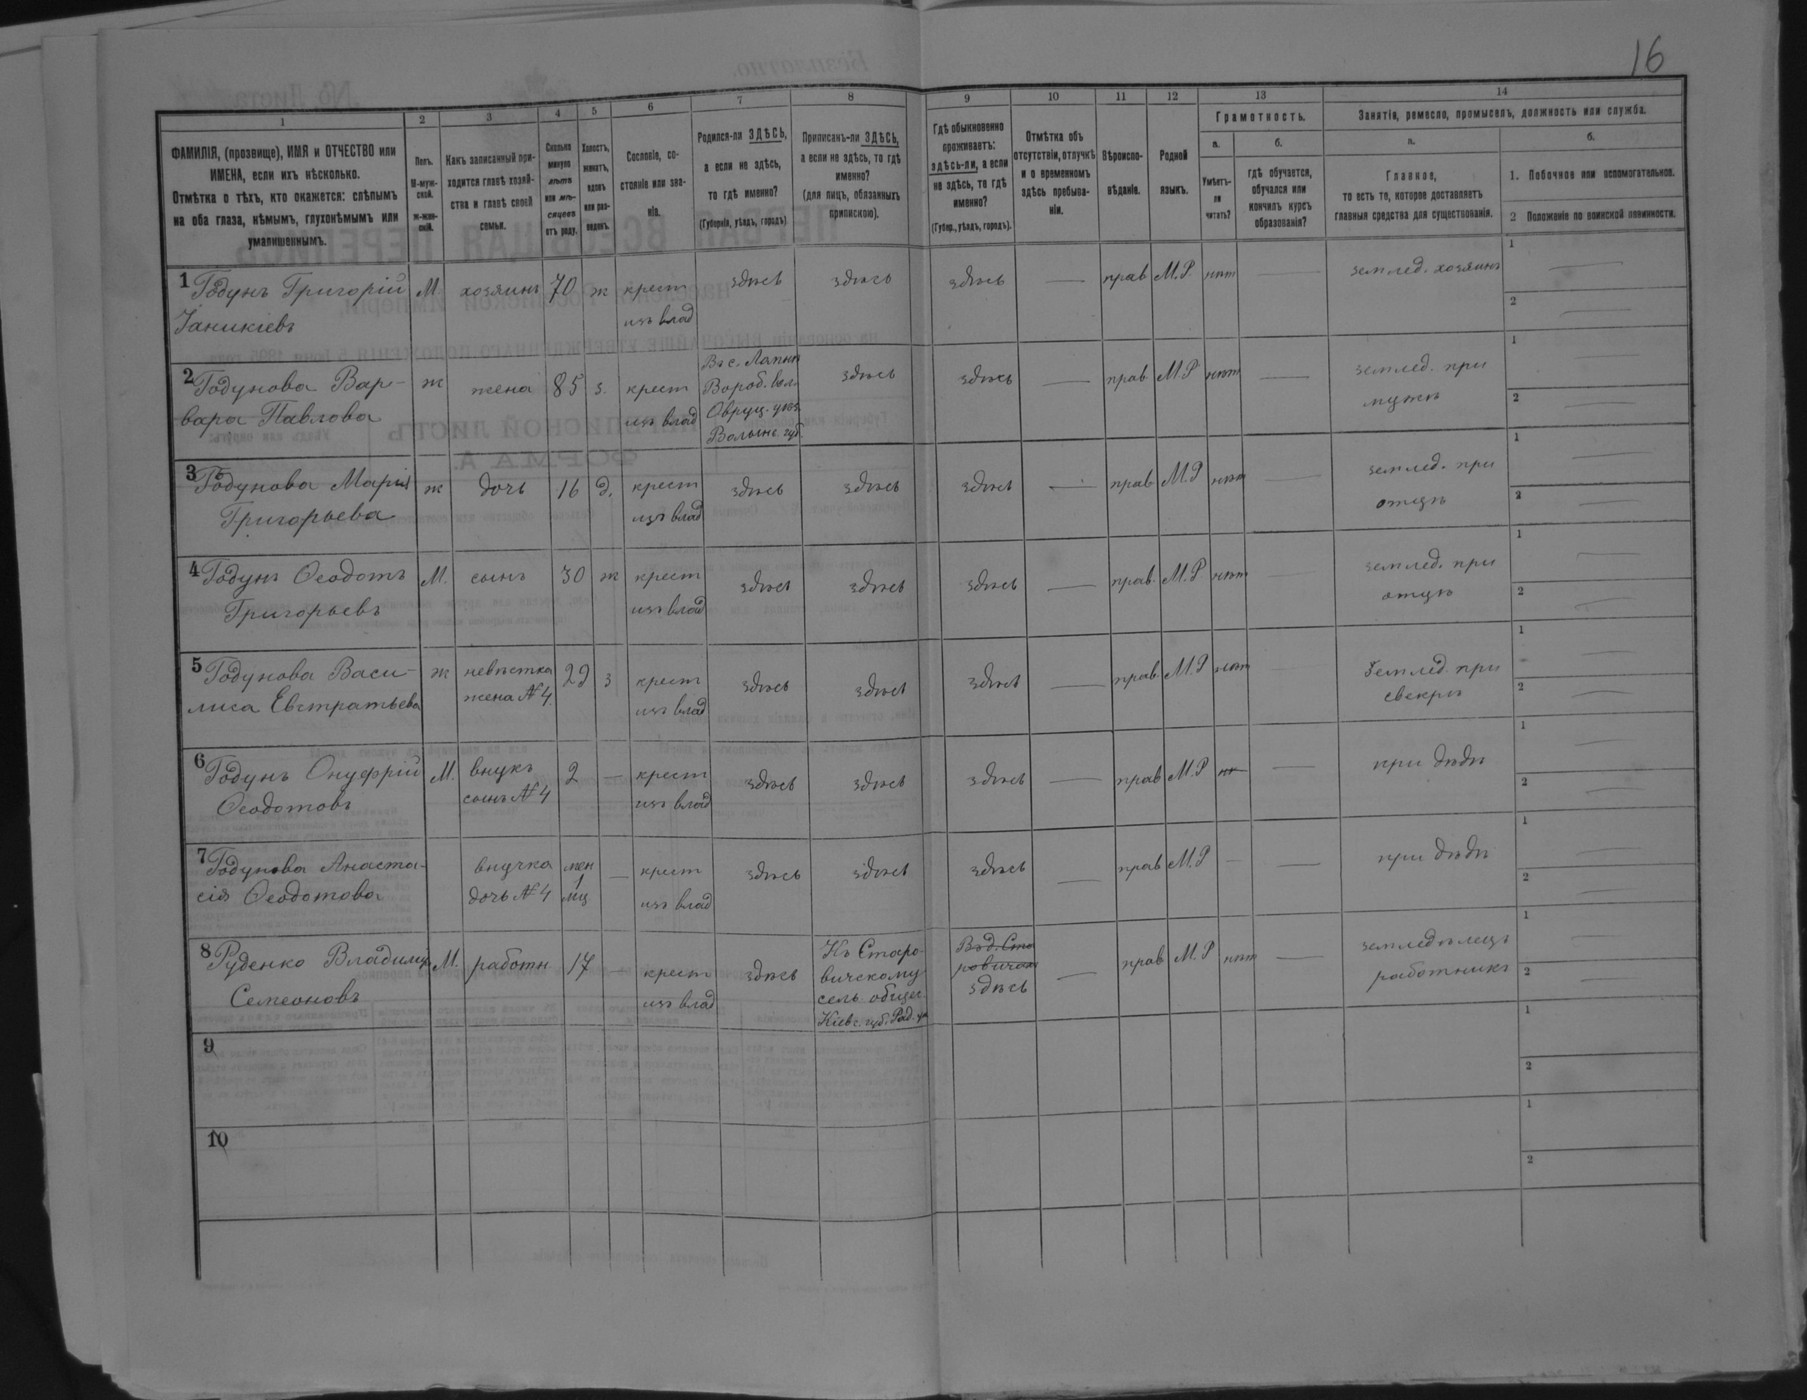 16
1 2 3 4 5 6 7 8 9 10 11 12 13 14
ФАМИЛІЯ, (прозвище), ИМЯ и ОТЧЕСТВО или
ИМЕНА, если ихъ нѣсколько.
Отмѣтка о тѣхъ, кто окажется: слѣпымъ
на оба глаза, нѣмымъ, глухонѣмымъ или
умалишеннымъ.
Полъ.
М-муж-
ской.
ж-жен-
скій.
Какъ записанный при-
ходится главѣ хозяй-
ства и главѣ своей
семьи.
Сколько
минуло
лѣтъ
или мѣ-
сяцевъ
отъ роду.
Холостъ,
женатъ,
вдовъ
или раз-
веденъ.
Сословіе, со-
стояніе или зва-
ніе.
Родился-ли ЗДѢСЬ,
а если не здѣсь,
то гдѣ именно?
(Губернія, уѣздъ, городъ)
Приписанъ-ли ЗДѢСЬ,
а если не здѣсь, то гдѣ
именно?
(для лицъ, обязанныхъ
припискою).
Гдѣ обыкновенно
проживаетъ:
здѣсь-ли, а если
не здѣсь, то гдѣ
именно?
(Губер., уѣздъ, городъ).
Отмѣтка объ
отсутствіи, отлучкѣ
и о временномъ
здѣсь пребыва-
ніи.
Вѣроиспо-
вѣданіе.
Родной
языкъ.
Грамотность.
а.
Умѣетъ-
ли
читать?
б.
гдѣ обучается,
обучался или
кончилъ курсъ
образованія?
Занятіе, ремесло, промыселъ, должность или служба.
а.
Главное,
то есть то, которое доставляетъ
главныя средства для существованія.
б.
1. Побочное или вспомогательное.
2 Положеніе по воинской повинности.
1 Годунъ Григорій М хозяинъ 70 ж крест здѣсь здѣсь здѣсь — прав М.Р. нѣт — землед. хозяинъ 1 —
Іаникіевъ изъ влад 2 —
2 Годунова Вар- ж жена 85 з. крест Въ с. здѣсь здѣсь — прав М.Р нѣт — землед. при 1 —
вара Павлова изъ влад Вороб. вол. мужѣ 2 —
Овруц. уѣз.
Волынс. губ.
3 Годунова Марія ж дочь 16 д. крест здѣсь здѣсь здѣсь — прав М.Р нѣт — землед. при 1 —
Григорьева изъ влад отцѣ 2 —
4 Годунъ Ѳеодотъ М. сынъ 30 ж крест здѣсь здѣсь здѣсь — прав. М.Р нѣт — землед. при 1 —
Григорьевъ изъ влад отцѣ 2 —
5 Годунова Васи- ж невѣстка 29 з крест здѣсь здѣсь здѣсь — прав. М.Р нѣт — землед. при 1 —
лиса Евстратьева жена № 4. изъ влад свекрѣ 2 —
6 Годунъ Онуфрій М. внукъ 2 — крест здѣсь здѣсь здѣсь — прав М.Р — при дѣдѣ 1 —
Ѳеодотовъ сынъ № 4 изъ влад 2 —
7 Годунова Анаста- внучка мен — крест здѣсь здѣсь здѣсь — прав М.Р — — при дѣдѣ 1 —
сія Ѳеодотова дочь № 4 1 мц изъ влад 2 —
8 Руденко Владиміръ М. работн 17 — крест здѣсь Къ Старо- здѣсь — прав М.Р нѣт — земледѣлецъ 1 —
Семеоновъ изъ влад вичскому работникъ 2 —
сель. общес.
Кіевс. губ. Рад. у.
9 1
2
10 1
2